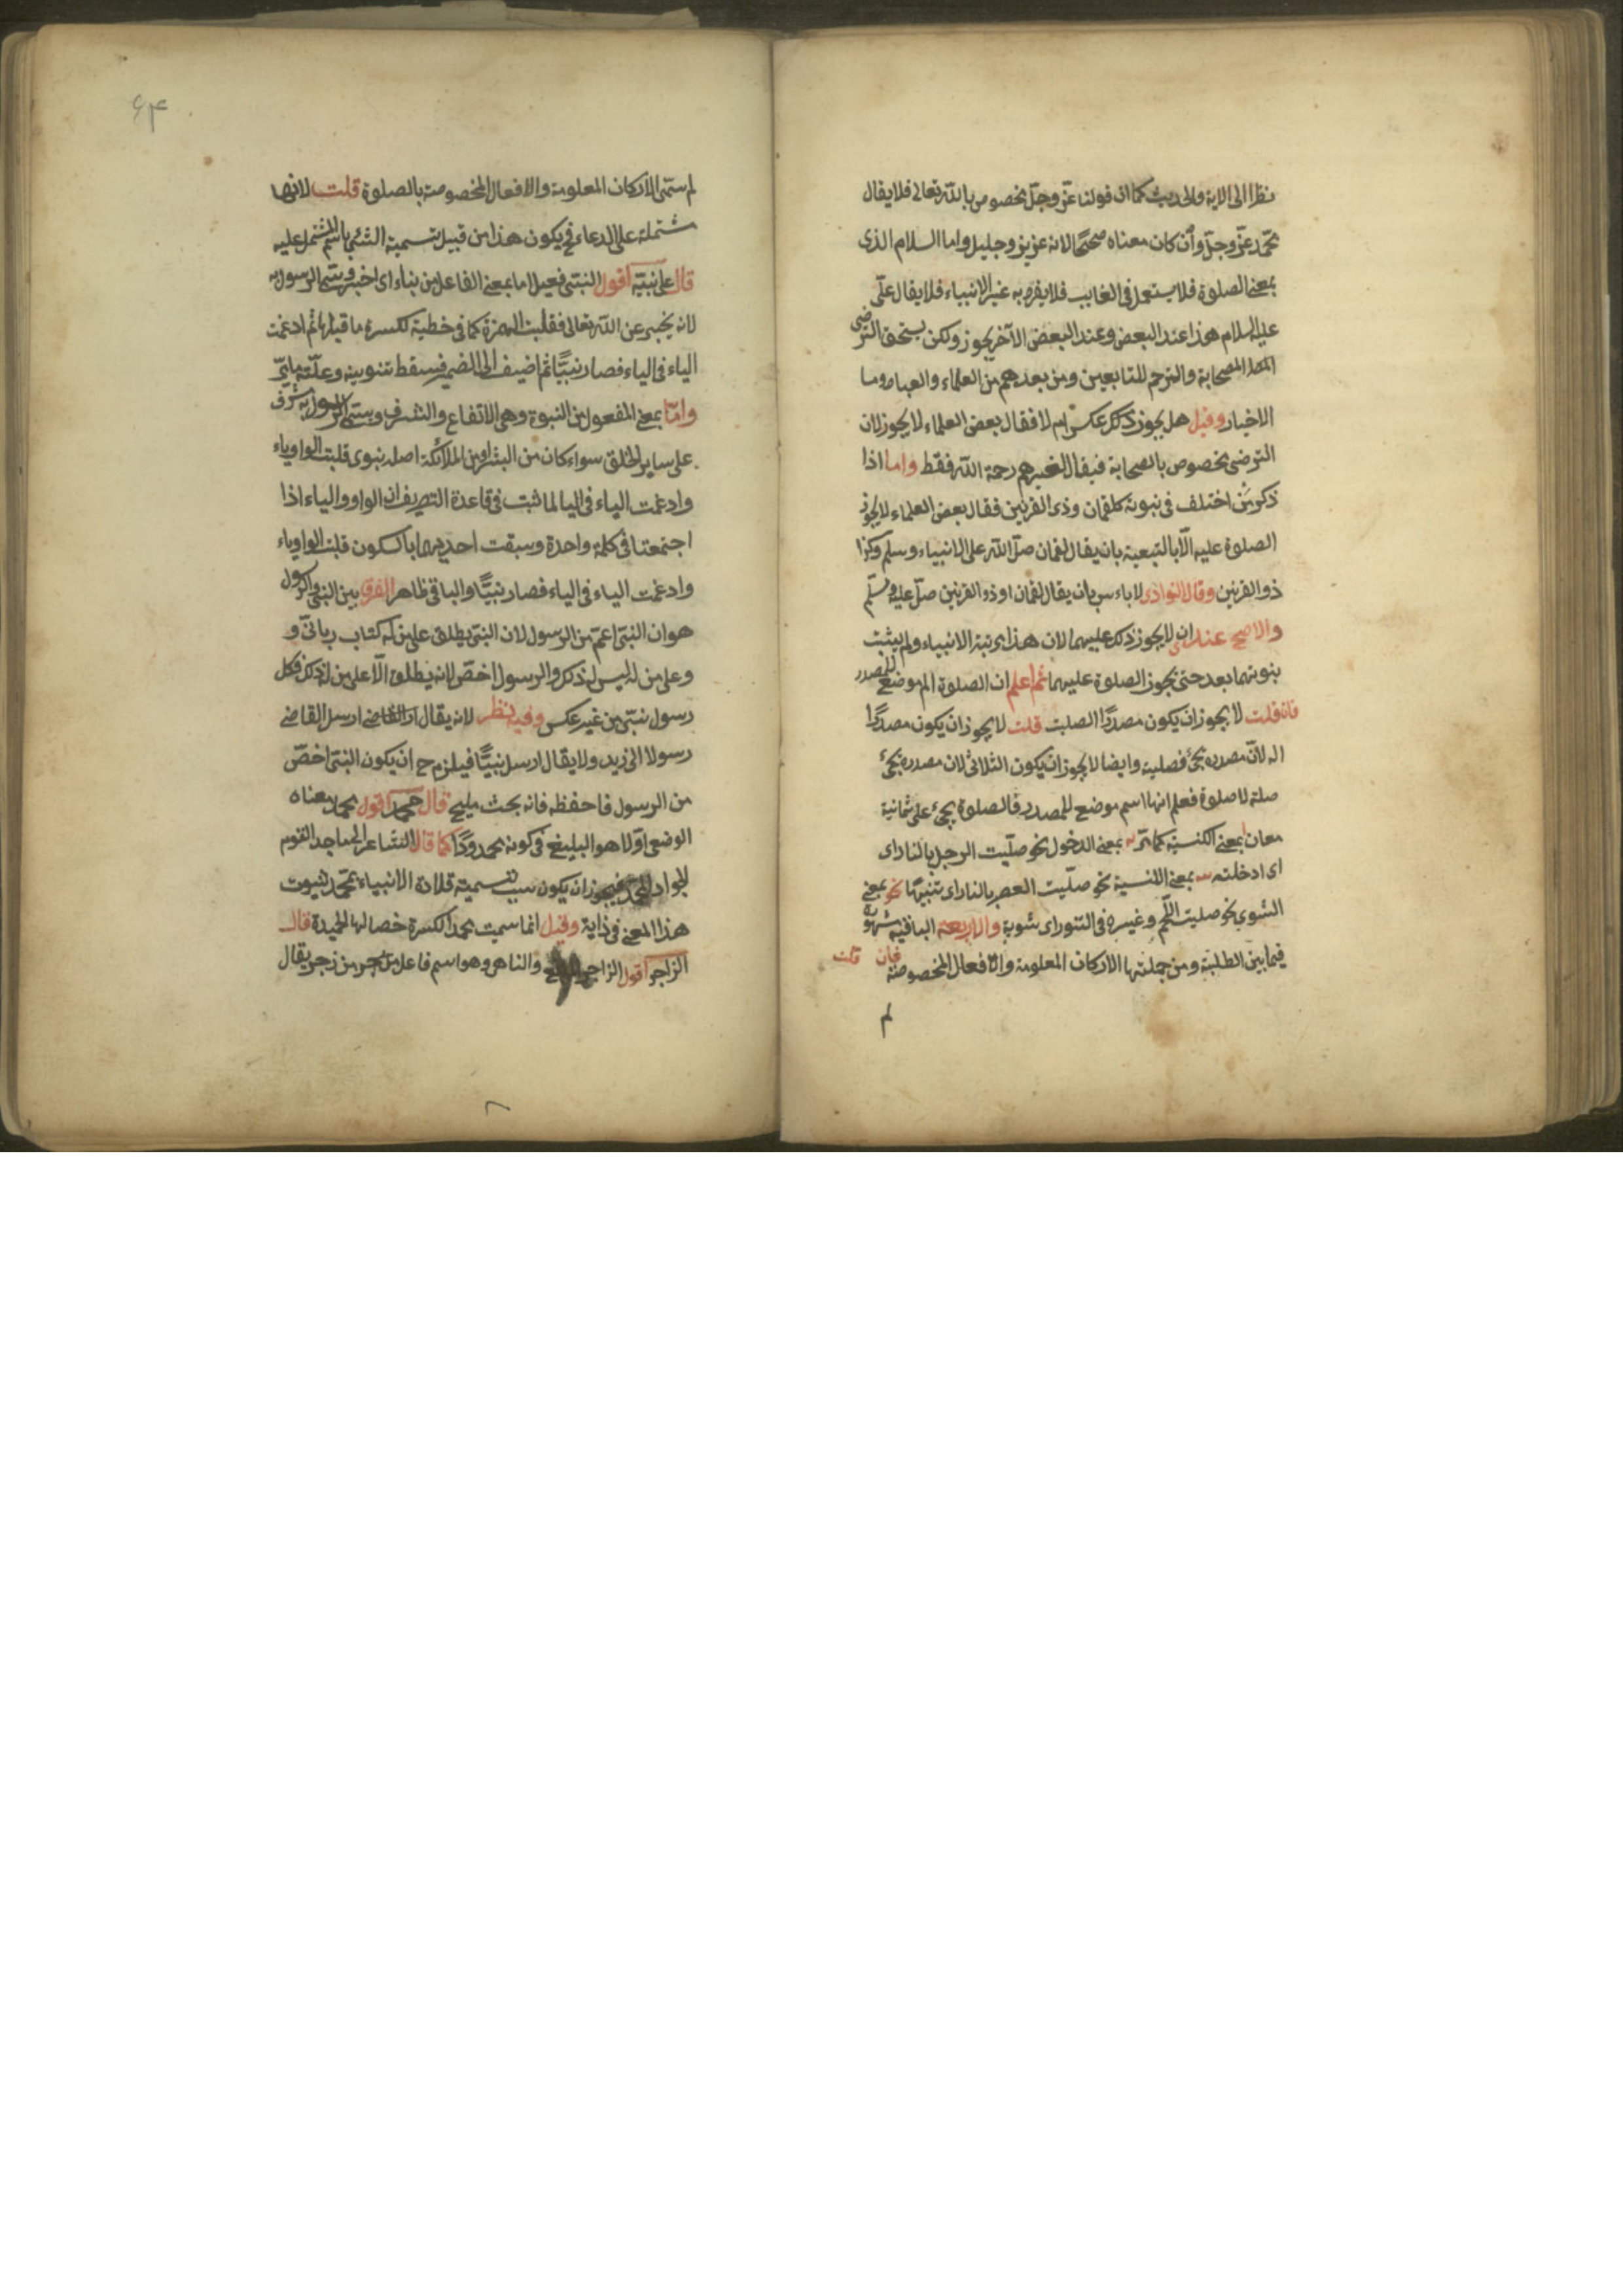 نظرا الى الاية والحديث كما ان قولنا عزّ وجلّ مخصوص بالله تعالى فلا يقال
محمّد عزّ وجلّ وان كان معناه صحيحًا لانه عزيز وجليل واما السلام الذى
بمعنى الصلوة فلا يستعمل فى الغايب فلا يفرد به غير الانبياء فلا يقال علىّ
عليه السلام هذا عند البعض وعند البعض الآخر يجوز ولكن يستحق الترضى
الصحابة والترحم للتابعين ومن بعدهم من العلماء والعباد وما
الاخيار وقيل هل يجوز ذلك عكس ام لا فقال بعض العلماء لا يجوز لان
الترضى مخصوص بالصحابة فيقال لغيرهم رحمة الله فقط واما اذا
ذكر من اختلف فى نبوته كلقمان وذى القرنين فقال بعض العلماء لا يجوز
الصلوة عليه الّا بالتبعية بان يقال لقمان صلّ الله على الانبياء وسلم وكذا
ذو القرنين وقال النوادى لا باءس بان يقال لقمان او ذو القرنين صلّ عليه وسلّم
والاصح عندى ان لا يجوز ذلك عليهما لان هذا مرتبة الانبياء ولم يثبت
بنوتهما بعد حتى يجوز الصلوة عليهما ثم اعلم ان الصلوة اسم موضع للمصدر
فان قلت لا يجوز ان يكون مصدرًا الصلبت قلت لا يجوز ان يكون مصدرًا
اله لانّ مصدره يجئ فصلية وايضا لا يجوز ان يكون الثلاثى لان مصدره يجئ
صلة لا صلوة فعلم انها اسم موضع للمصدر فالصلوة يجئ على ثمانية
معان بمعنى الكنسية كما مّر بمعنى الدخول نحو صلّيت الرجل بالنار اى
اى ادخلته بمعنى اللنسية نحو صلّيت العصر بالنار اى تنبيهًا نحو بمعنى
الشوى نحو صليت اللّحم وغيره فى التنور اى شوية والاربعة الباقية مشهورة
فيما بين الطلبة ومن جملتها الاركان المعلومة والافعال المخصوصة فان قلت
لم
۶۴
لم ستمى الاركان المعلومة والافعال المخصوصة بالصلوة قلت لانها
مشتملة على الدعاء فح يكون هذا من قبيل تسمية الشئ باسم المشتمل عليه
قال على نبيّه اقول النبىّ فعيل اما بمعنى الفاعل من نباء اى اخبر ويسمى الرسول به
لانه يخبر عن الله تعالى فقلبت الهمزة كما فى خطية لكسرة ما قبلها ثم ادغمت
الياء فى الياء فصار نبيًّا ثم اضيف الى الضمير فسقط تنوينه وعلّته مامّر
وامّا بمعنى المفعول من النبوة وهى الاتفاع والشرف ويسمى الرسول به شرف
على ساير الخلق سواء كان من البشر او من الملائكة اصله نبوى قلبت الواو ياء
وادغمت الياء فى اليا لما ثبت فى قاعدة التصريف ان الواو والياء اذا
اجتمعتا فى كلمة واحدة وسبقت احديهما باكسكون قلبت الواو ياء
وادغمت الياء فى الياء فصار نبيًّا والباقى ظاهر الفرق بين النبى والرسول
هو ان النبىّ اعمّ من الرسول لان النبى يطلق على من له كتاب ربانىّ و
وعلى من له ليس له ذلك والرسول اخصّ لانه يطلق الّا على من له ذلك فكل
رسول نبىّ من غير عكس وفيه نظر لانه يقال ارسل القاضى ارسل القاضى
رسولا الى زيد ولا يقال ارسل نبيًّا فيلزم ح ان يكون النبىّ اخصّ
من الرسول فاحفظه فانه بحث مليح قال محمد اقول محمد معناه
الوضعى اوّلا هو البليغ فى كونه محمدودًا كما قال الشاعر الى ماجد القوم
الجواد المحمّد فيجوز ان يكون سبب تسمية قلادة الانبياء بمحمّد ثبوت
هذا المعنى فى ذاية وقيل انما سميت محمدا لكسرة خصالها الحميدة قال
الزاجر اقول الزاجر والناهى وهو اسم فاعل من زجر يقال